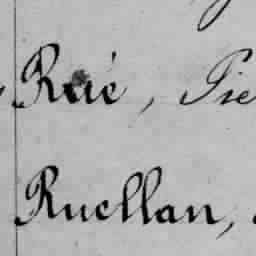 Rué, Pie
Ruellan,